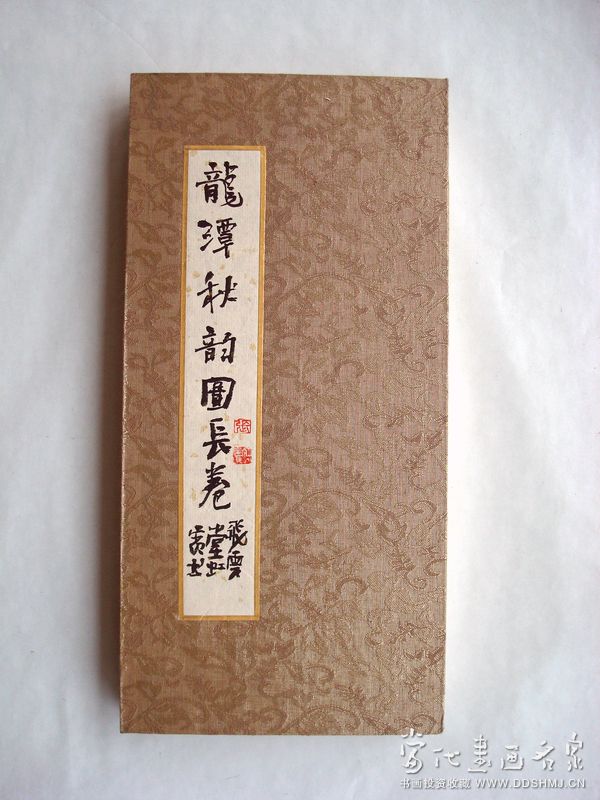 龍潭秋韵圖長卷
飛雲
堂虹
當代書画名家
书画投资收藏 WWW.DDSHMJ.CN